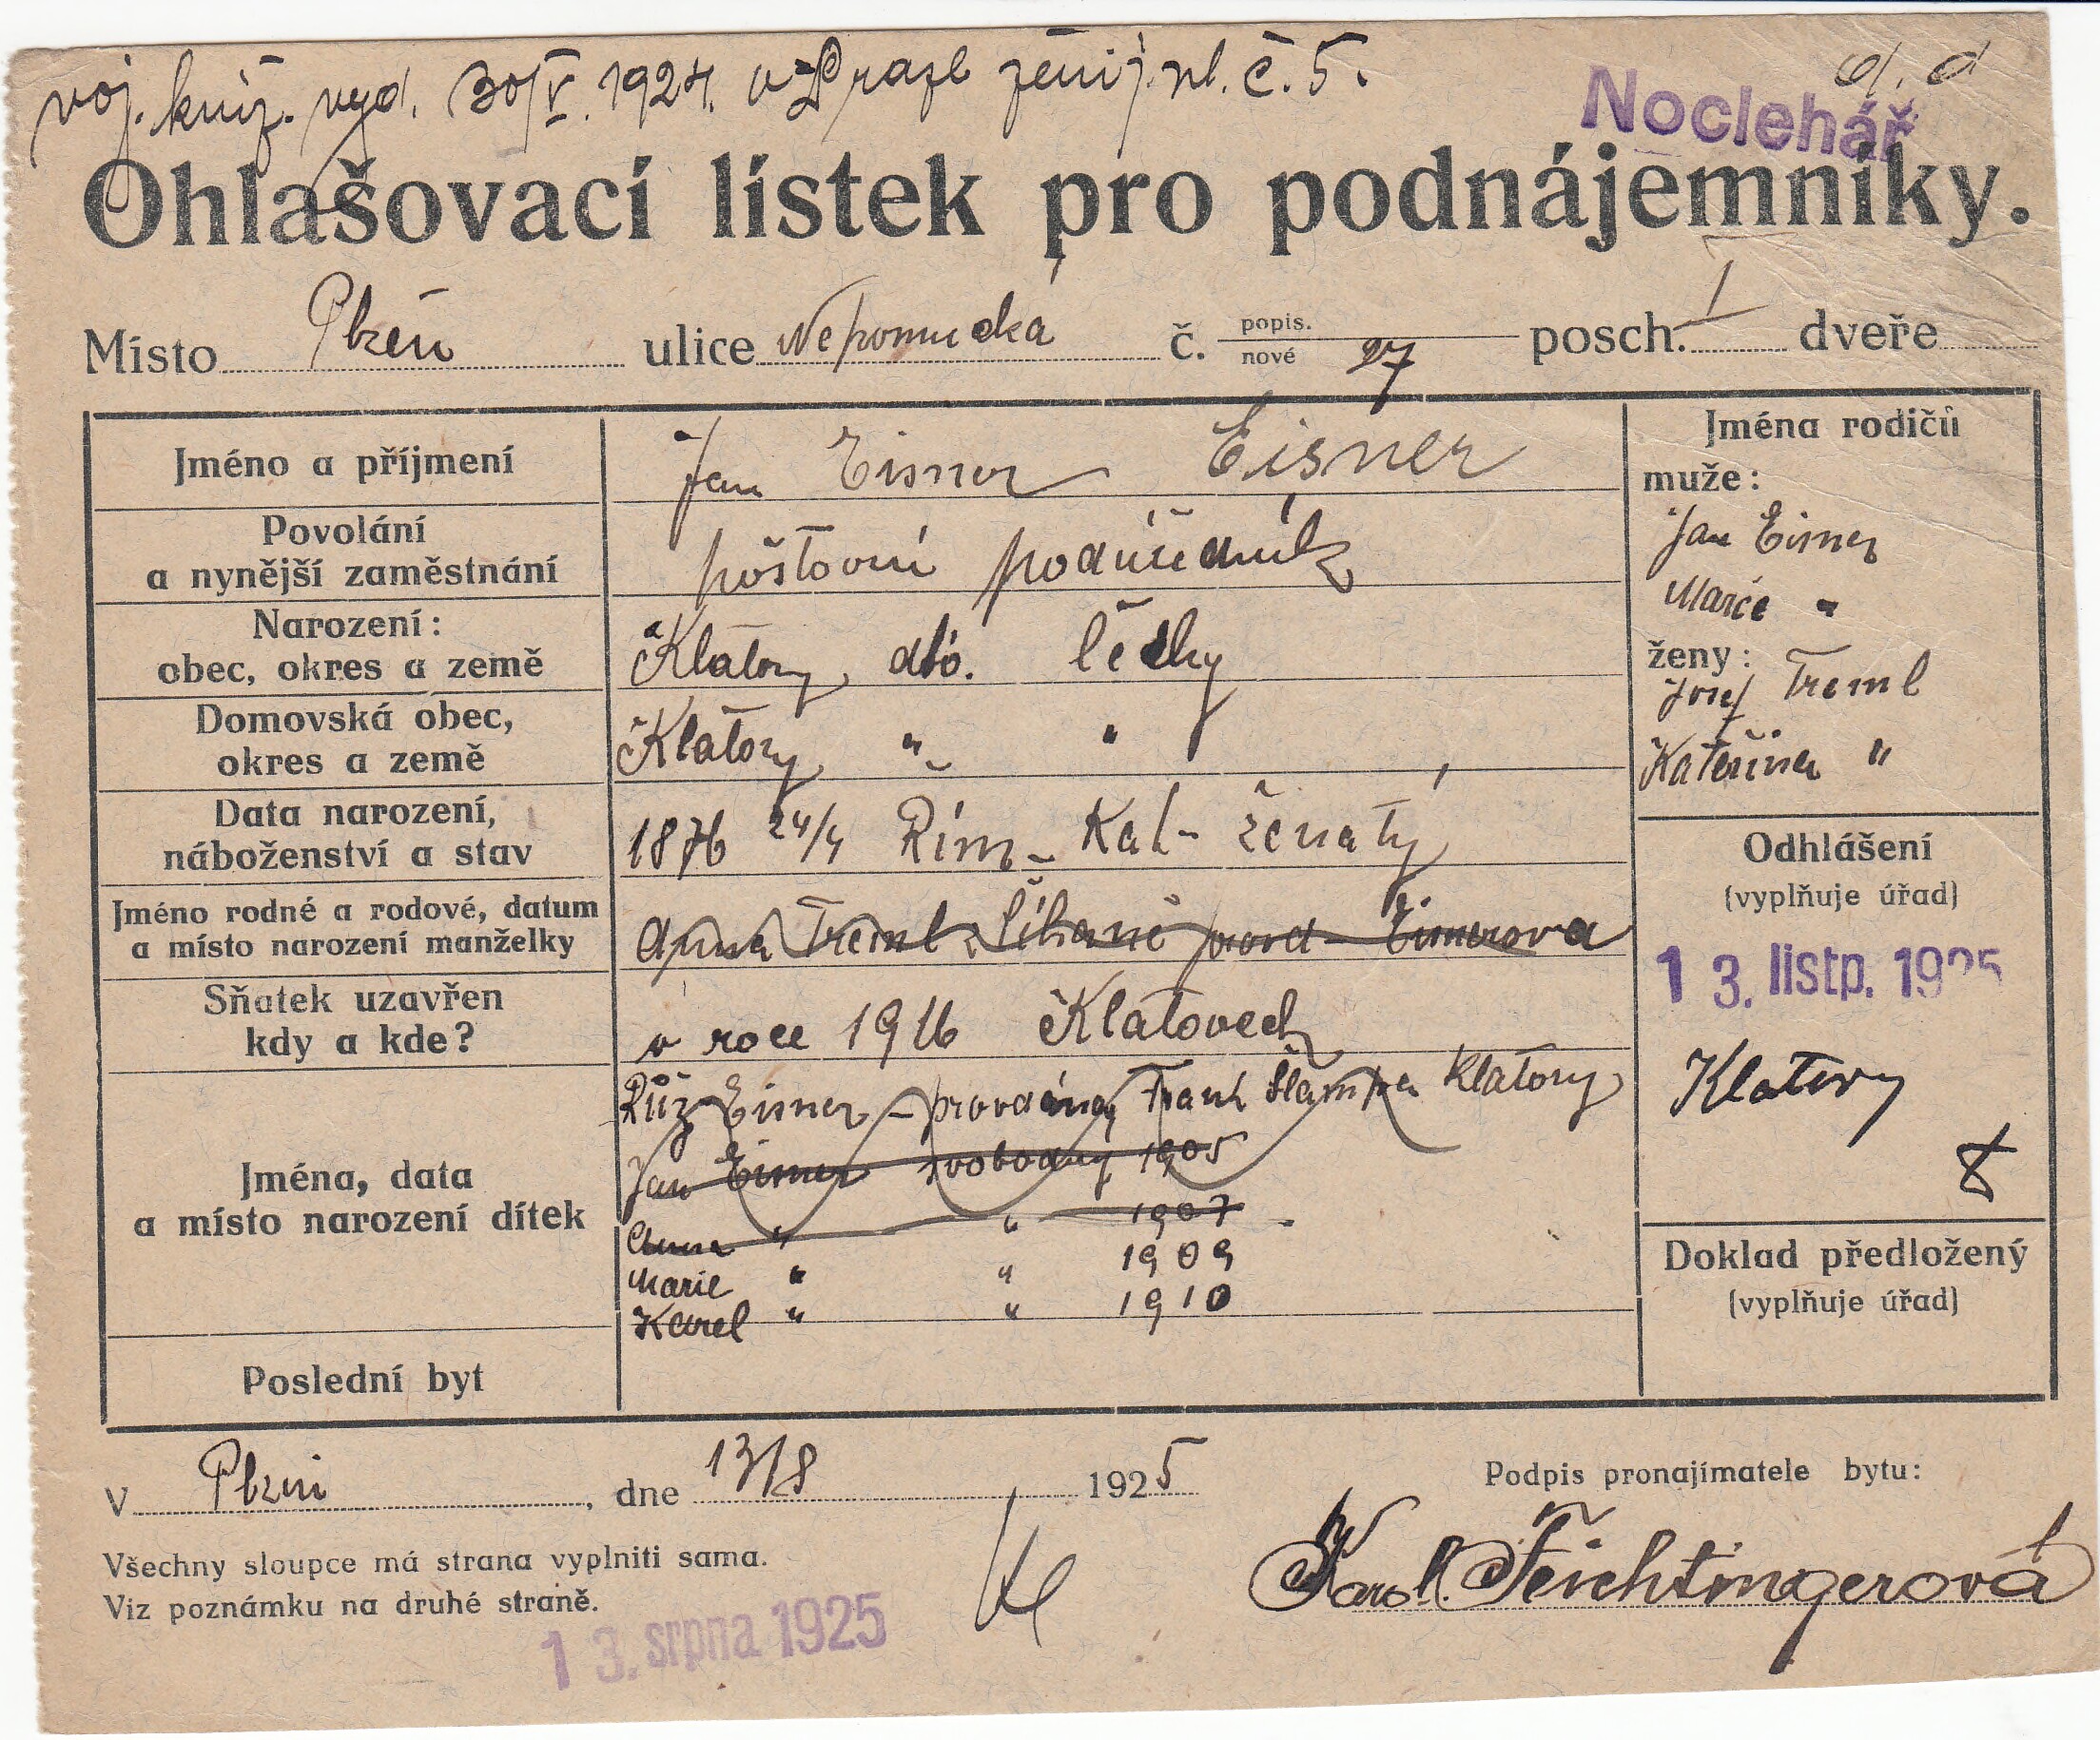 voj. kniž. vyd. 30/V. 1924. v Praze ženij. pl. č. 5.
d. d
Noclehář
Ohlašovací lístek pro podnájemníky.
Místo Plzeň ulice Nepomucká č. popis. nové 27 posch. I dveře
Jméno a příjmení
Jan Eisner Eisner
Povolání
a nynější zaměstnání
poštovní podúředník
Narození:
obec, okres a země
Klatovy dto. čechy
Domovská obec,
okres a země
Klatovy " "
Data narození,
náboženství a stav
1876 24/4 Řím- Kat- ženatý
Jméno rodné a rodové, datum
a místo narození manželky
Anna Treml provd- Eisnerova
Sňatek uzavřen
kdy a kde?
v roce 1916 Klatovech
Jména, data
a místo narození dítek
Růž Eisner - provdána Frant Šlampa Klatovy
Jan Eisner svobodný 1905
Anna " " 1907
Marie " " 1909
Karel " " 1910
Poslední byt
Jména rodičů
muže:
Jan Eisner
Marie "
ženy:
Josef Treml
Kateřina "
Odhlášení
(vyplňuje úřad)
13. listp. 1925
Klatovy
8
Doklad předložený
(vyplňuje úřad)
V Plzni, dne 13/8 1925
Podpis pronajímatele bytu:
Karol. Feichtingerová
Všechny sloupce má strana vyplniti sama.
Viz poznámku na druhé straně.
13. srpna 1925